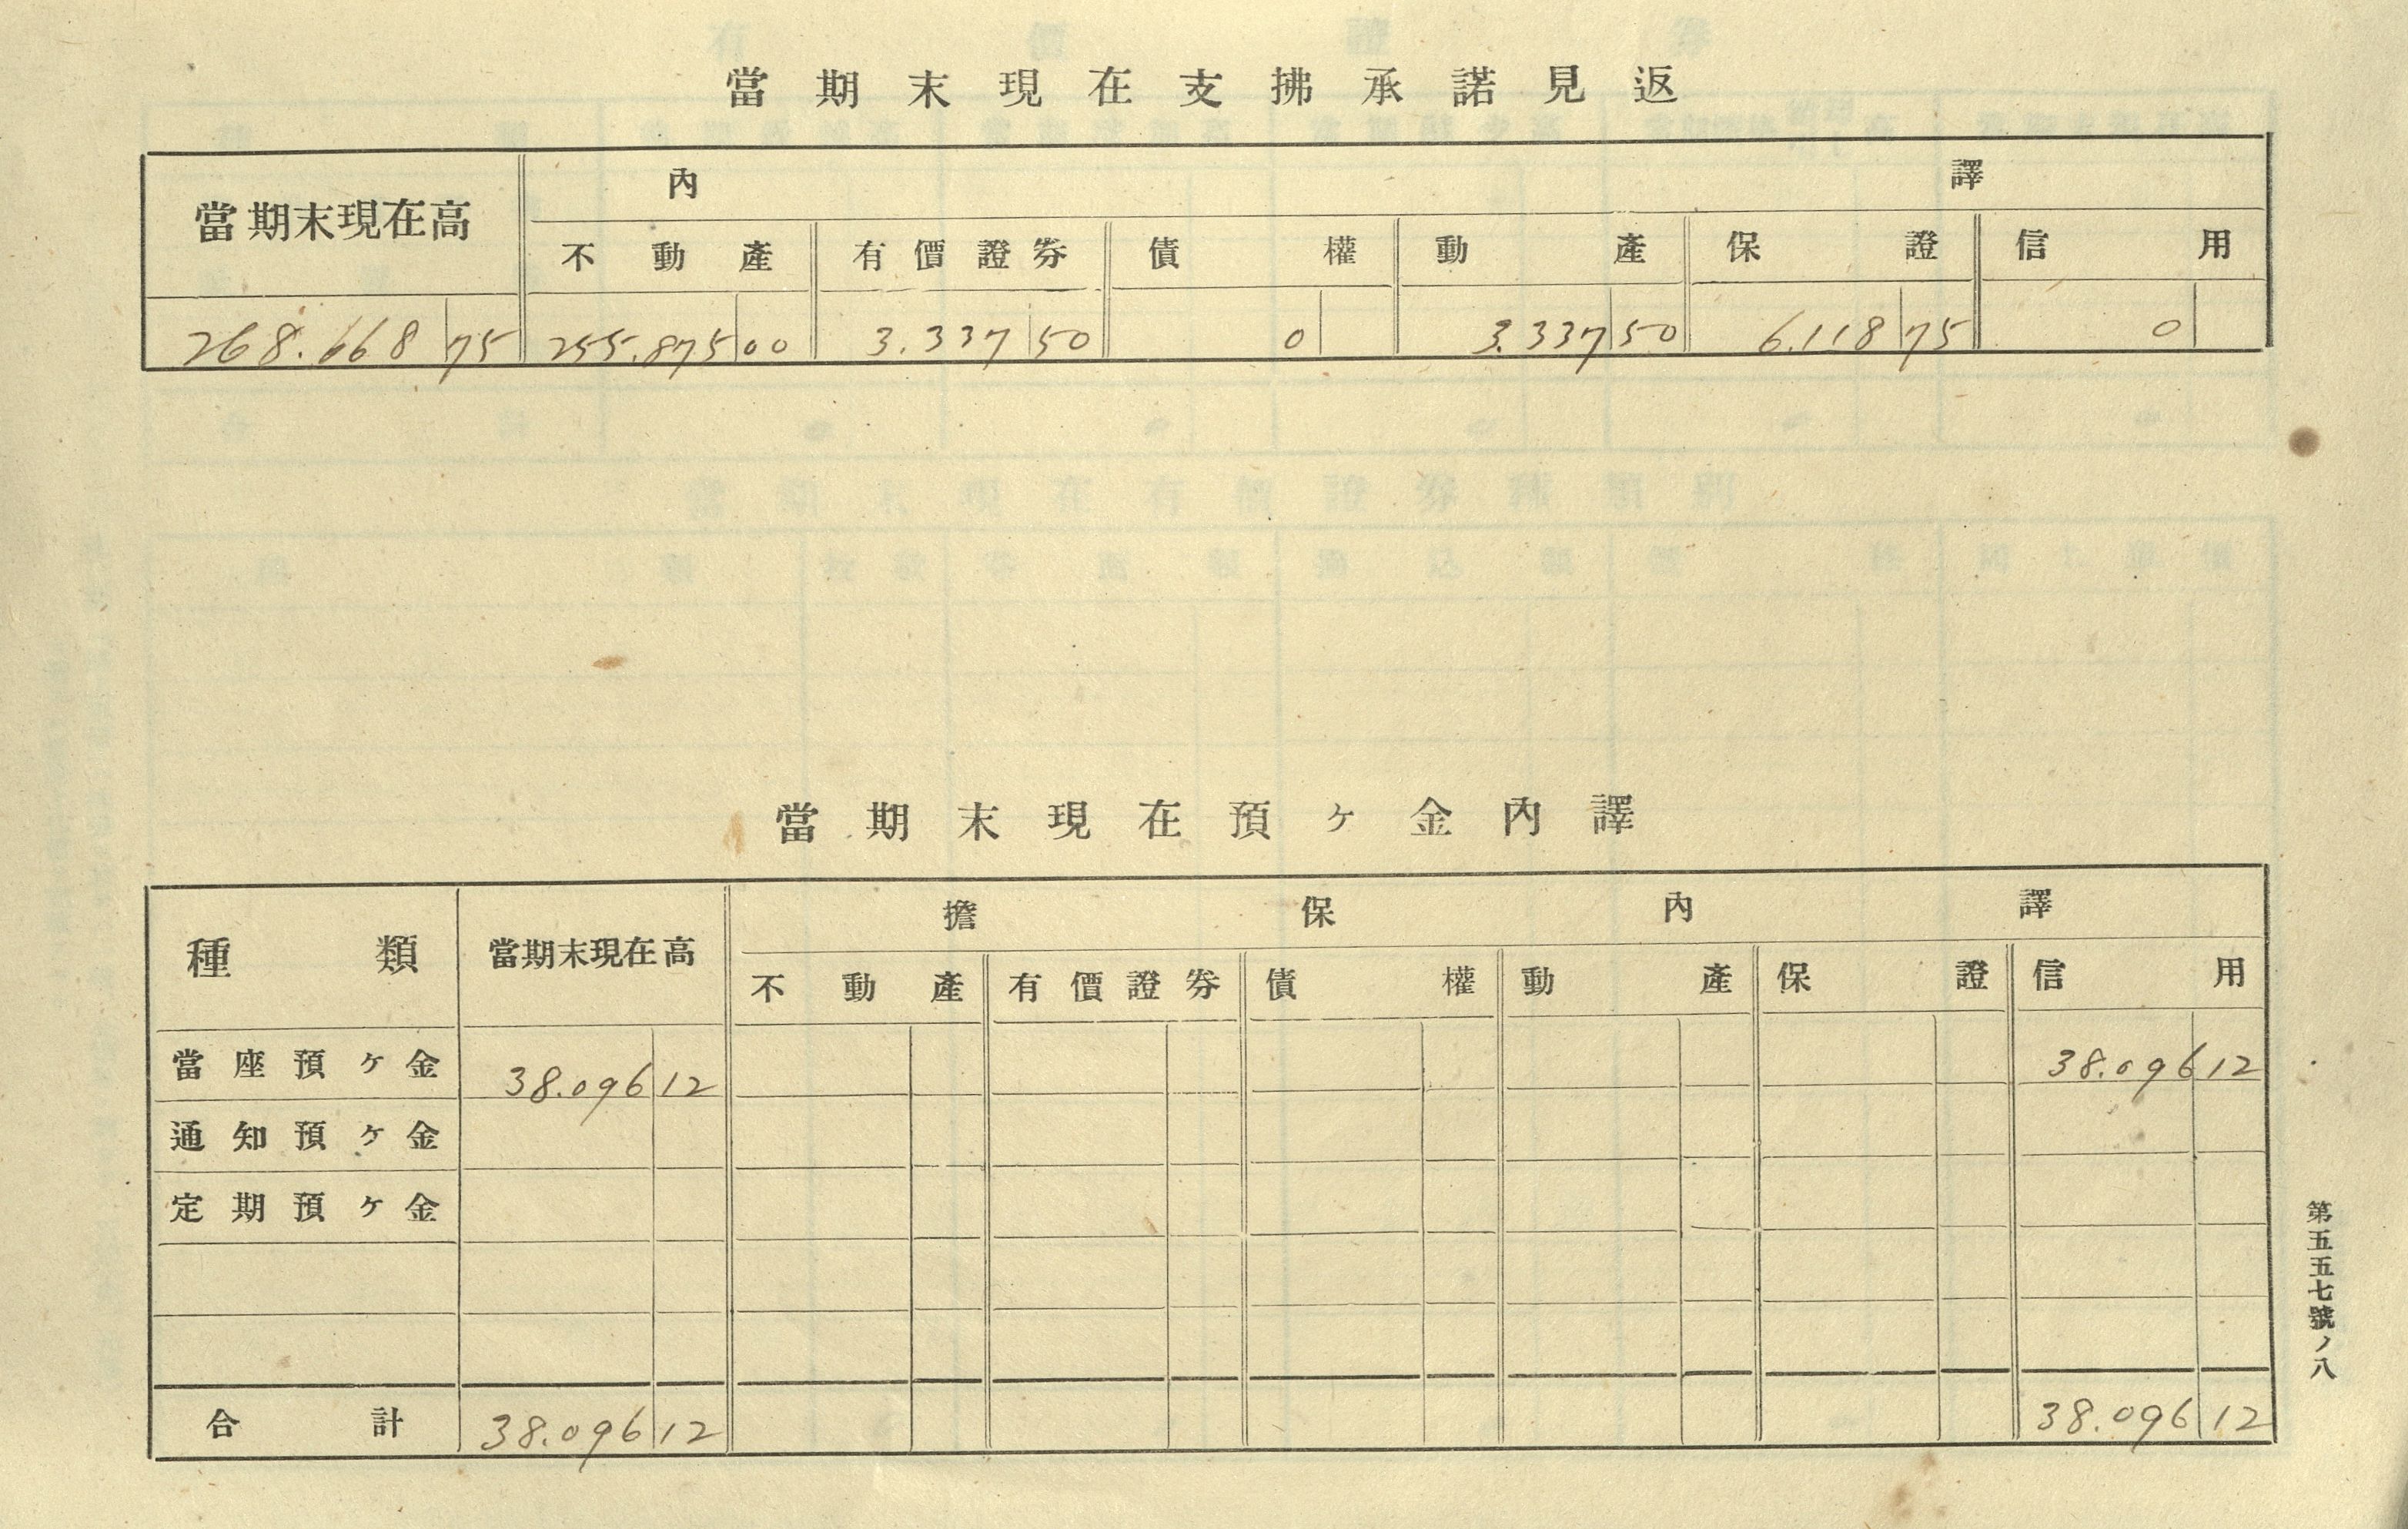 當期末現在支拂承諾見返
當期末現在高 內譯
不動產 有價證券 債權 動產 保證 信用
268.668 75 255.875 00 3.337 50 0 3.337 50 6.118 75 0
當期末現在預ヶ金內譯
種類 當期末現在高 擔保內譯
不動產 有價證券 債權 動產 保證 信用
當座預ヶ金 38.096 12 38.096 12
通知預ヶ金
定期預ヶ金
合計 38.096 12 38.096 12
第五五七號ノ八